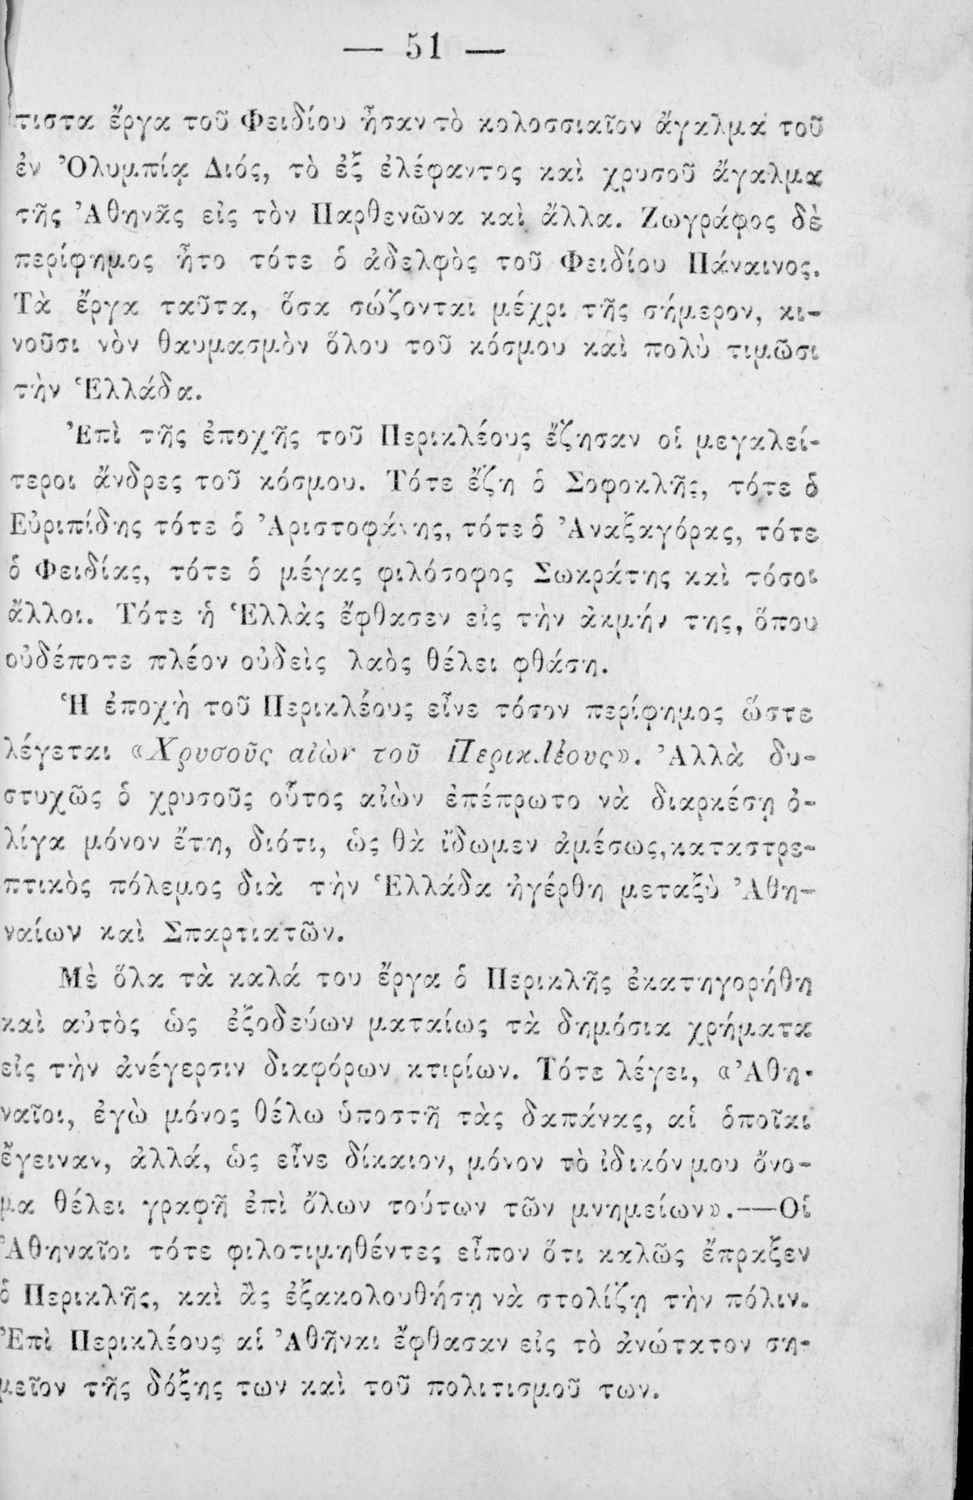 — 51 —
τιστα ἔργα τοῦ Φειδίου ἦσαν τὸ κολοσσιαῖον ἄγαλμα τοῦ
ἐν Ὀλυμπίᾳ Διός, τὸ ἐξ ἐλέφαντος καὶ χρυσοῦ ἄγαλμα
τῆς Ἀθηνᾶς εἰς τὸν Παρθενῶνα καὶ ἄλλα. Ζωγράφος δὲ
περίφημος ἦτο τότε ὁ ἀδελφὸς τοῦ Φειδίου Πάναινος.
Τὰ ἔργα ταῦτα, ὅσα σώζονται μέχρι τῆς σήμερον, κι-
νοῦσι νὸν θαυμασμὸν ὅλου τοῦ κόσμου καὶ πολὺ τιμῶσι
τὴν Ἑλλάδα.
Ἐπὶ τῆς ἐποχῆς τοῦ Περικλέους ἔζησαν οἱ μεγαλεί-
τεροι ἄνδρες τοῦ κόσμου. Τότε ἔζη ὁ Σοφοκλῆς, τότε ὁ
Εὐριπίδης τότε ὁ Ἀριστοφάνης, τότε ὁ Ἀναξαγόρας, τότε
ὁ Φειδίας, τότε ὁ μέγας φιλόσοφος Σωκράτης καὶ τόσοι
ἄλλοι. Τότε ἡ Ἑλλὰς ἔφθασεν εἰς τὴν ἀκμήν της, ὅπου
οὐδέποτε πλέον οὐδεὶς λαὸς θέλει φθάση.
Ἡ ἐποχὴ τοῦ Περικλέους εἶνε τόσον περίφημος ὥστε
λέγεται «Χρυσοῦς αἰὼν τοῦ Περικλέους». Ἀλλὰ δυ-
στυχῶς ὁ χρυσοῦς οὗτος αἰὼν ἐπέπρωτο νὰ διαρκέσῃ ὀ-
λίγα μόνον ἔτη, διότι, ὡς θὰ ἴδωμεν ἀμέσως, καταστρε-
πτικὸς πόλεμος διὰ τὴν Ἑλλάδα ἠγέρθη μεταξὺ Ἀθη-
ναίων καὶ Σπαρτιατῶν.
Μὲ ὅλα τὰ καλά του ἔργα ὁ Περικλῆς ἐκατηγορήθη
καὶ αὐτὸς ὡς ἐξοδεύων ματαίως τὰ δημόσια χρήματα
εἰς τὴν ἀνέγερσιν διαφόρων κτιρίων. Τότε λέγει, «Ἀθη-
ναῖοι, ἐγὼ μόνος θέλω ὑποστῆ τὰς δαπάνας, αἱ ὁποῖαι
ἔγειναν, ἀλλά, ὡς εἶνε δίκαιον, μόνον τὸ ἰδικόν μου ὄνο-
μα θέλει γραφῆ ἐπὶ ὅλων τούτων τῶν μνημείων».—Οἱ
Ἀθηναῖοι τότε φιλοτιμηθέντες εἶπον ὅτι καλῶς ἔπραξεν
ὁ Περικλῆς, καὶ ἂς ἐξακολουθήσῃ νὰ στολίζῃ τὴν πόλιν.
Ἐπὶ Περικλέους αἱ Ἀθῆναι ἔφθασαν εἰς τὸ ἀνώτατον ση-
μεῖον τῆς δόξης των καὶ τοῦ πολιτισμοῦ των.